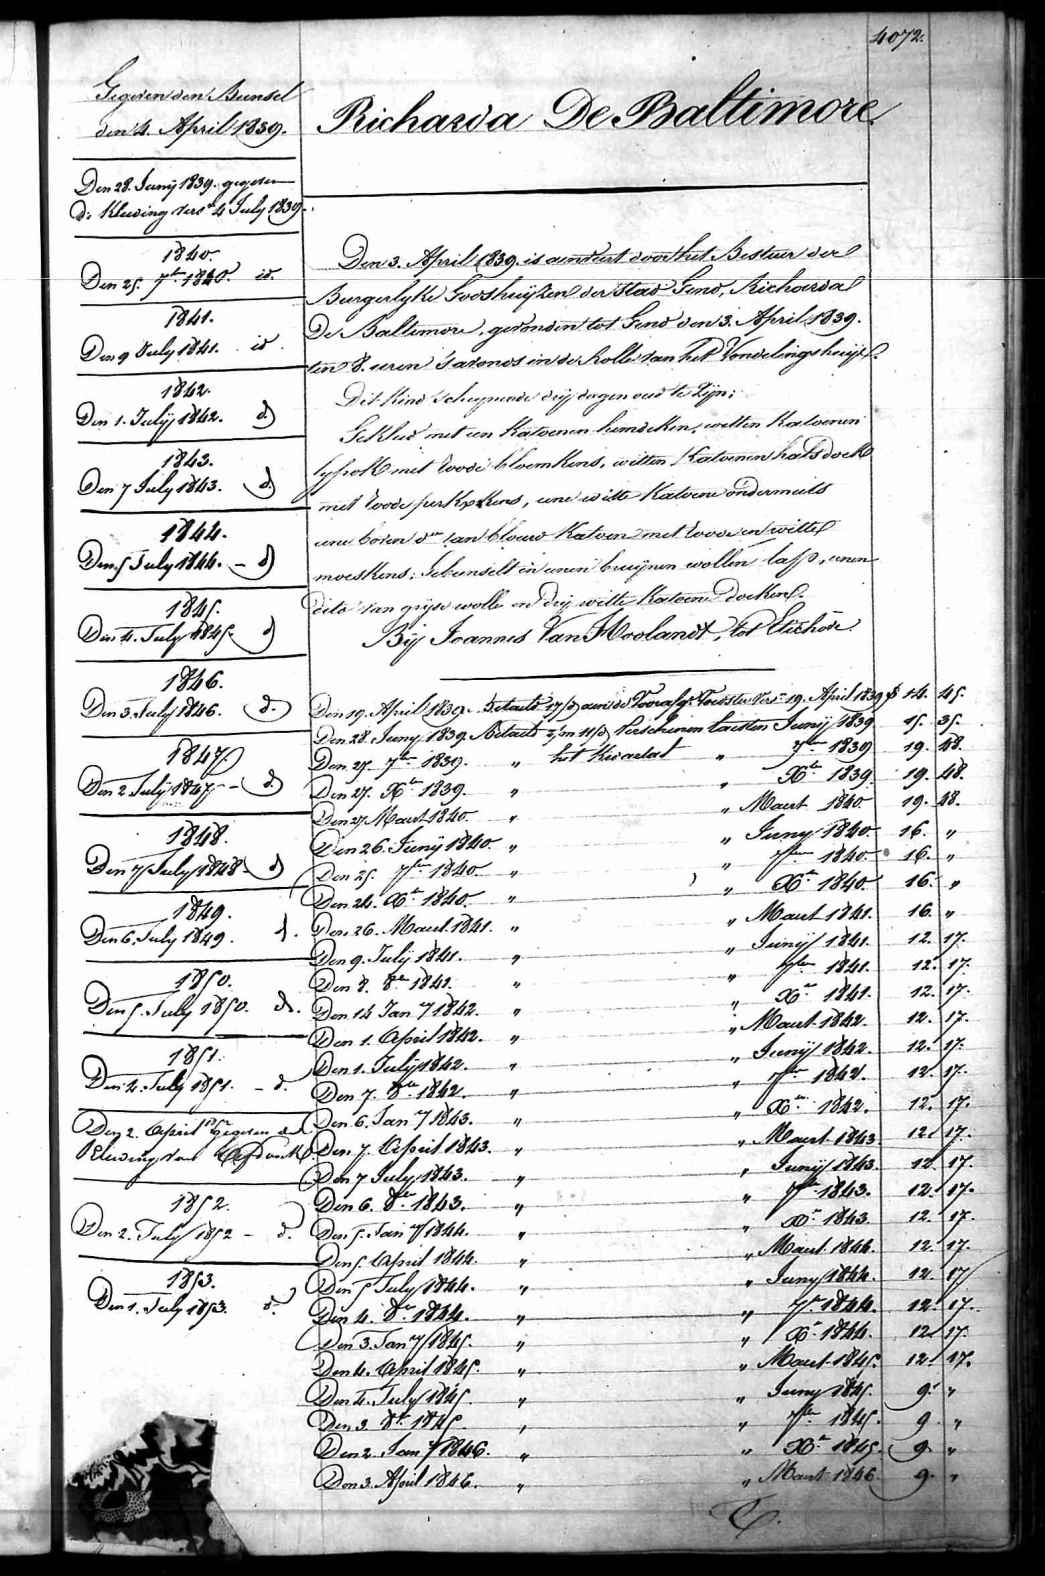 4072.
Gegeven den Bunsel
den 4. April 1839.
Den 28. Junij 1839. gegeven
de Kleeding vers. 4 July 1839.
1840.
Den 25. 7ber 1840. id.
1841.
Den 9 July 1841. id.
1842.
Den 1. Julij 1842. d.
1843.
Den 7 July 1843. d.
1844.
Den 5 July 1844. - d.
1845.
Den 4. July 1845. d.
1846.
Den 3. July 1846. d.
1847.
Den 2 July 1847. - d.
1848.
Den 7 July 1848. d.
1849.
Den 6. July 1849. d.
1850.
Den 5. July 1850. d.
1851.
Den 4. July 1851. - d.
Den 2. April gegeven de
Kleeding van
1852.
Den 2. July 1852 - d.
1853.
Den 1. July 1853. d.
Richarda De Baltimore.
Den 3. April 1839. is aenveert door het Bestuer der
Burgerlyke Godshuijzen der stad Gend, Richarda
De Baltimore, gevonden tot Gend den 3. April 1839.
ten 8. uren 's avonds in de Rolle van het Vondelingshuijs.
Dit Kind scheynende drij dagen oud te zijn;
Gekleed met een Katoenen hemdeken, witten Katoenen
met roode bloemkens, witten Katoenen halsdoek
met roode perkskens, eene witte Katoene ondermuts
eene boven d. van blauw Katoen met roode en witte
moeskens; Gebunselt in eenen bruijnen wollen lap, eenen
dito van gryse wolle en drij witte Katoene doeken.
Bij Joannes Van Hoolandt, tot Elichove.
Den 19. April 1839. Betaeld 17/ aen de Vooralge. Voedster Vers. 19. April 1839 14. 45.
Den 28. Juny 1839. Betaeld 2/m 11/ Verschenen laesten Junij 1839 15. 35.
Den 27. 7ber 1839. " het Kwartael " 7ber 1839 19. 48.
Den 27. Xber 1839. " " Xber 1839. 19. 48.
Den 27 Maert 1840. " " Maert 1840 19. 48.
Den 26. Junij 1840. " " Juny 1840. 16. "
Den 25. 7ber 1840. " " 7ber 1840. 16. "
Den 24. Xber 1840. " " Xber 1840. 16. "
Den 26. Maert 1841. " " Maert 1841. 16. "
Den 9. Julij 1841. " " Junij 1841. 12. 17.
Den 8. 8ber 1841. " " 7ber 1841. 12. 17.
Den 14 Jany 1842. " " Xber 1841. 12. 17.
Den 1. April 1842. " " Maert 1842. 12. 17.
Den 1. Julij 1842. " " Junij 1842. 12. 17.
Den 7. 8ber 1842. " " 7ber 1842. 12. 17.
Den 6. Jany 1843. " " Xber 1842. 12. 17.
Den 7. April 1843. " " Maert 1843. 12. 17.
Den 7 July 1843. " " Junij 1843. 12. 17.
Den 6. 8ber 1843. " " 7ber 1843. 12. 17.
Den 5. Jany 1844. " " Xber 1843. 12. 17.
Den 5. April 1844. " " Maert 1844. 12. 17.
Den 5 July 1844. " " Juny 1844. 12. 17
Den 4. 8ber 1844. " " 7ber 1844. 12. 17.
Den 3. Jany 1845. " " Xber 1844. 12. 17.
Den 4. April 1845. " " Maert 1845. 12. 17.
Den 4. July 1845. " " Juny 1845. 9. "
Den 3. 8ber 1845. " " 7ber 1845. 9. "
Den 2. Jany 1846. " " Xber 1845. 9. "
Den 3. April 1846. " " Maert 1846. 9. "